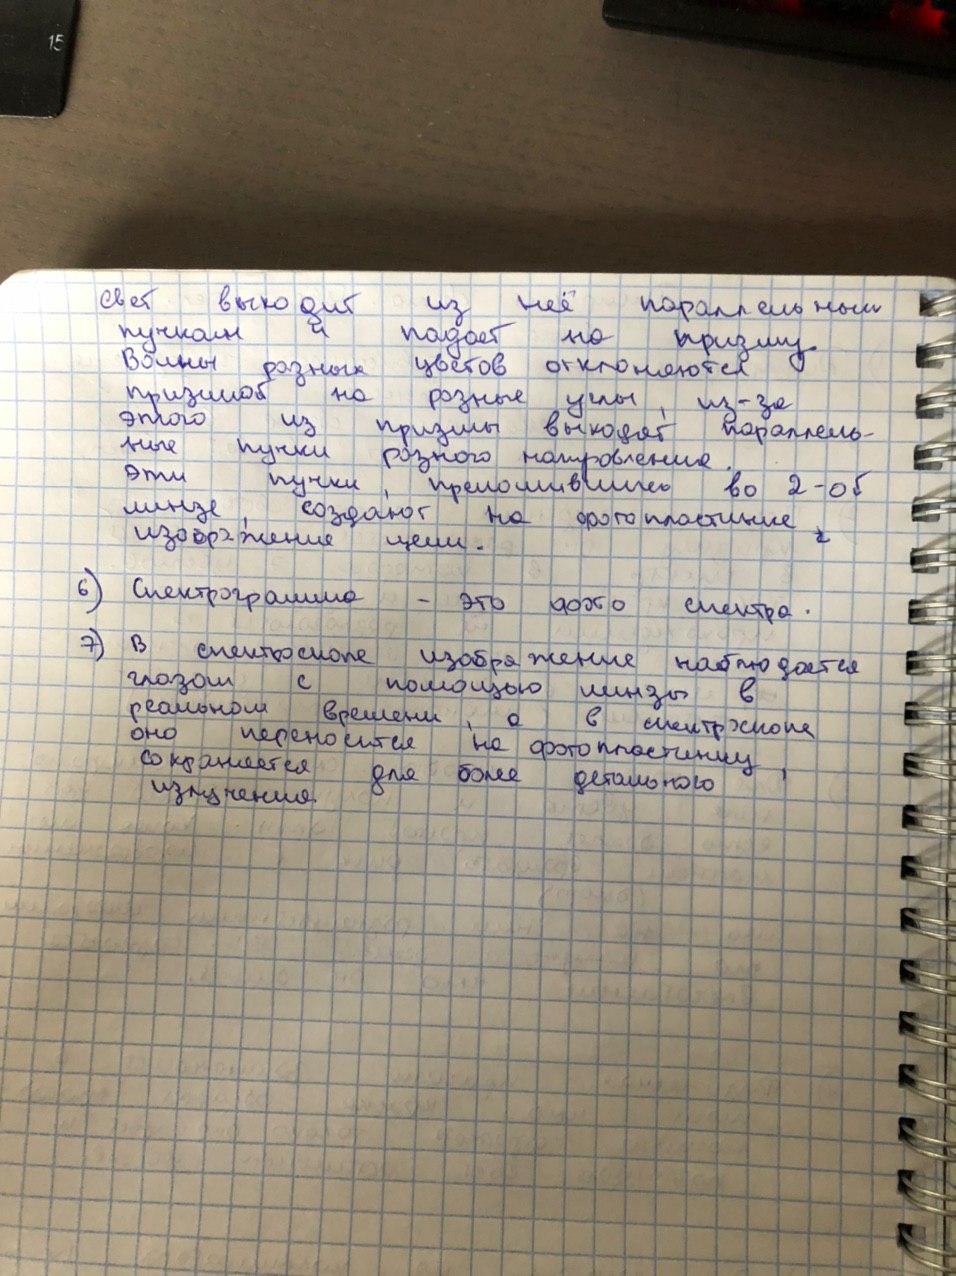 15
свет выходит из неё параллельным
пучком и падает на призму
Волны разных цветов отклоняются
призмой на разные углы, из-за
этого из призмы выходят параллель-
ные пучки разного направления.
Эти пучки, преломившись во 2-ой
линзе, создают на фотопластинке
изображение щели.
6) Спектрограмма - это фото спектра.
7) В спектроскопе изображение наблюдается
глазом с помощью линзы в
реальном времени, а в спектроскопе
оно переносится на фотопластинку,
сохраняется для более детального
излучения.